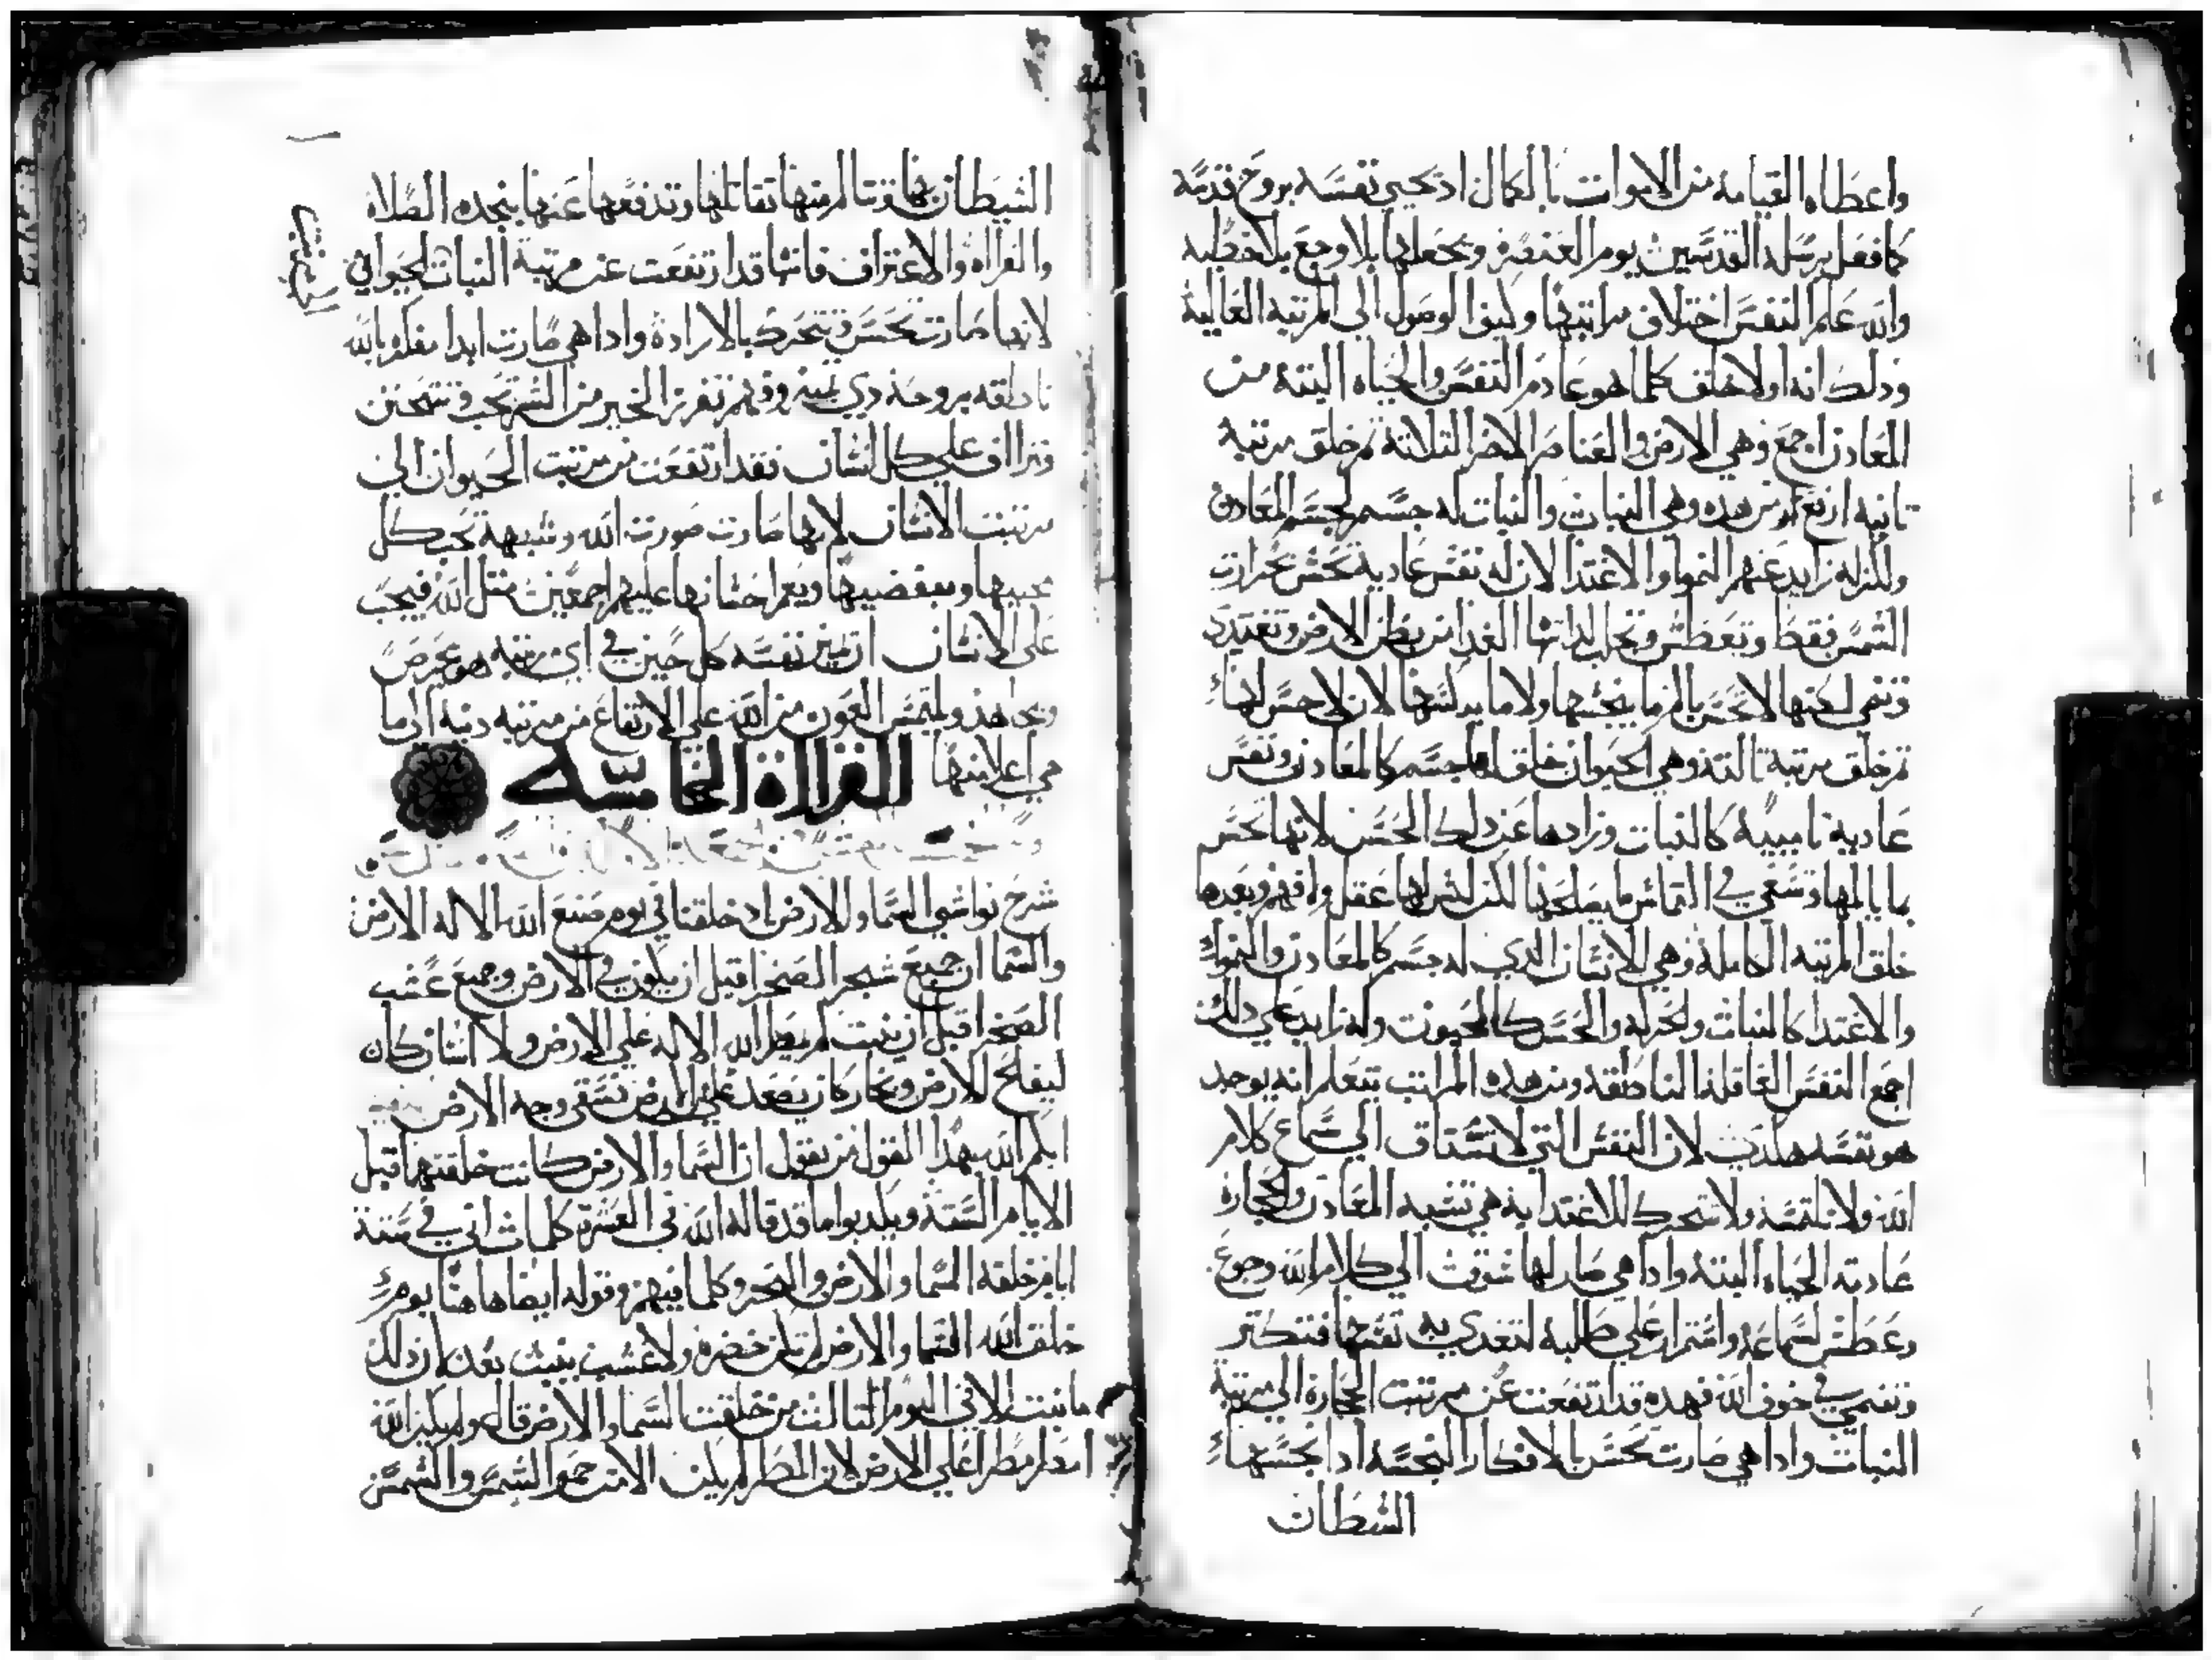 واعطاه القيامه من الاموات بالكمال اذ يحيي نفسه بروح قدسه
كما فعل برسله القديسين يوم العنصره ويجعلها بلا وجع بلا خطيه
والله علم النفس اختلاف مراتبها وكيف الوصول الى المرتبه العاليه
وذلك انه اولا خلق كلما هو عادم النفس والحياه البته من
المعادن اجمع وهي الارض والعناصر الاخر الثلاثة ثم خلق مرتبه
ثانيه ارفع من هذه وهي النبات والنبات له جسم كجسم المعادن
وله زايد عنهم النمو والاغتدا لان له نفس غاديه تحس بحرارت
الشمس فقط وتعطش وتجلب لداتها الغدا من بطن الارض وتغتدي
وتنمى لكنها لا تحس بالم ما ينخسها ولا ما يدلسها لان لا حس لها
ثم خلق مرتبة ثالثة وهي الحيوان خلق لها جسم كالمعادن ونفس
غادية ناميية كالنبات وزادها عن دلك الحس لانها تحس
بما يالمها وتسعى في التماس ما يصلحها لكن ليس لها عقل ولا فهم وبعدها
خلق المرتبه الكامله وهي الانسان الدي له جسم كالمعادن والنمو
والاغتدا كالنبات والحركه والحس كالحيوت وله زايد على دلك
اجمع النفس العاقله الناطقه ومن هذه المراتب يتعلم انه يوجد
هو نفسه هكدى لان النفس التي لا تشتاق الى سماع كلام
الله ولا تلتمسه ولا تتحرك للاغتدا به هي تشبه المعادن والحجارة
عادمة الحياه البتة وادا هي صار لها شوق الي كلام الله وجوع
وعطش لسماعه واستمرار على طلبه لتغدي به نفسها فتكتر
وتنمي في خوف الله فهده قد ارتفعت عن مرتبت الحجارة الي مرتبة
النبات وادا هي صارت تحس بالافكار النجسه ادا نجسها
الشيطان
الشيطان بها وتتالم منها تقاتلها وتدفعها عنها بنجده الصلاه
والقراه والاعتراف فانها قد ارتفعت عن مرتبة النبات للحيواني
لانها صارت تحس وتتحرك بالاراده وادا هي صارت ابدا مفكره بالله
ناطقه بروحه دي تميز وفهم تفرز الخير من الشر تحب وتتحنن
وتتراف على كل انسان فقد ارتفعت من مرتبت الحيوان الى
مرتبت الانسان لانها صارت صورت الله وشبهه تحب كل
محبيها ومبغضيها ويعم احسانها عليهم اجمعين مثل الله فيجب
على الانسان ان يميز نفسه كل حين في اي مرتبه هو يحرص
ويجاهد ويلتمس العون من الله على الارتفاع من مرتبه دنيه الى ما
هي اعلا منها القراءة الخامسة
شرح نواشي السما والارض اد خلقتا في يوم صنع الله الاله الارض
والسما ان جميع شجر الصخرا قبل ان يكون في الارض وجميع عشب
الصخرا قبل ان ينبت لم يمطر الله الاله على الارض ولا انسان كان
ليفلح الارض وبخار كان يصعد على الارض تسقى وجه الارض
ابكم الله بهدا القول من يقول ان السما والارض كانت خلقتهما قبل
الايام الستة ويكدبوا ما قد قاله الله في العشرة كلمات اني في ستة
ايام خلقة السما والارض والبحر وكلما فيهم وقوله ايضا هاهنا يوم
خلق الله السما والارض لم تكن خضره ولا عشب ينبت بعد اد دلك
ما ينبت الا في اليوم الثالث من خلقت السما والارض قال ولم يكن الله
امطر مطرا على الارض لان المطر لم يكن الا من حمو الشمس والشمس